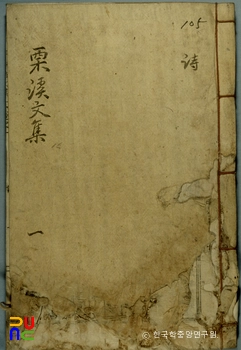 105
詩
栗溪文集
一
ⓒ 한국학중앙연구원